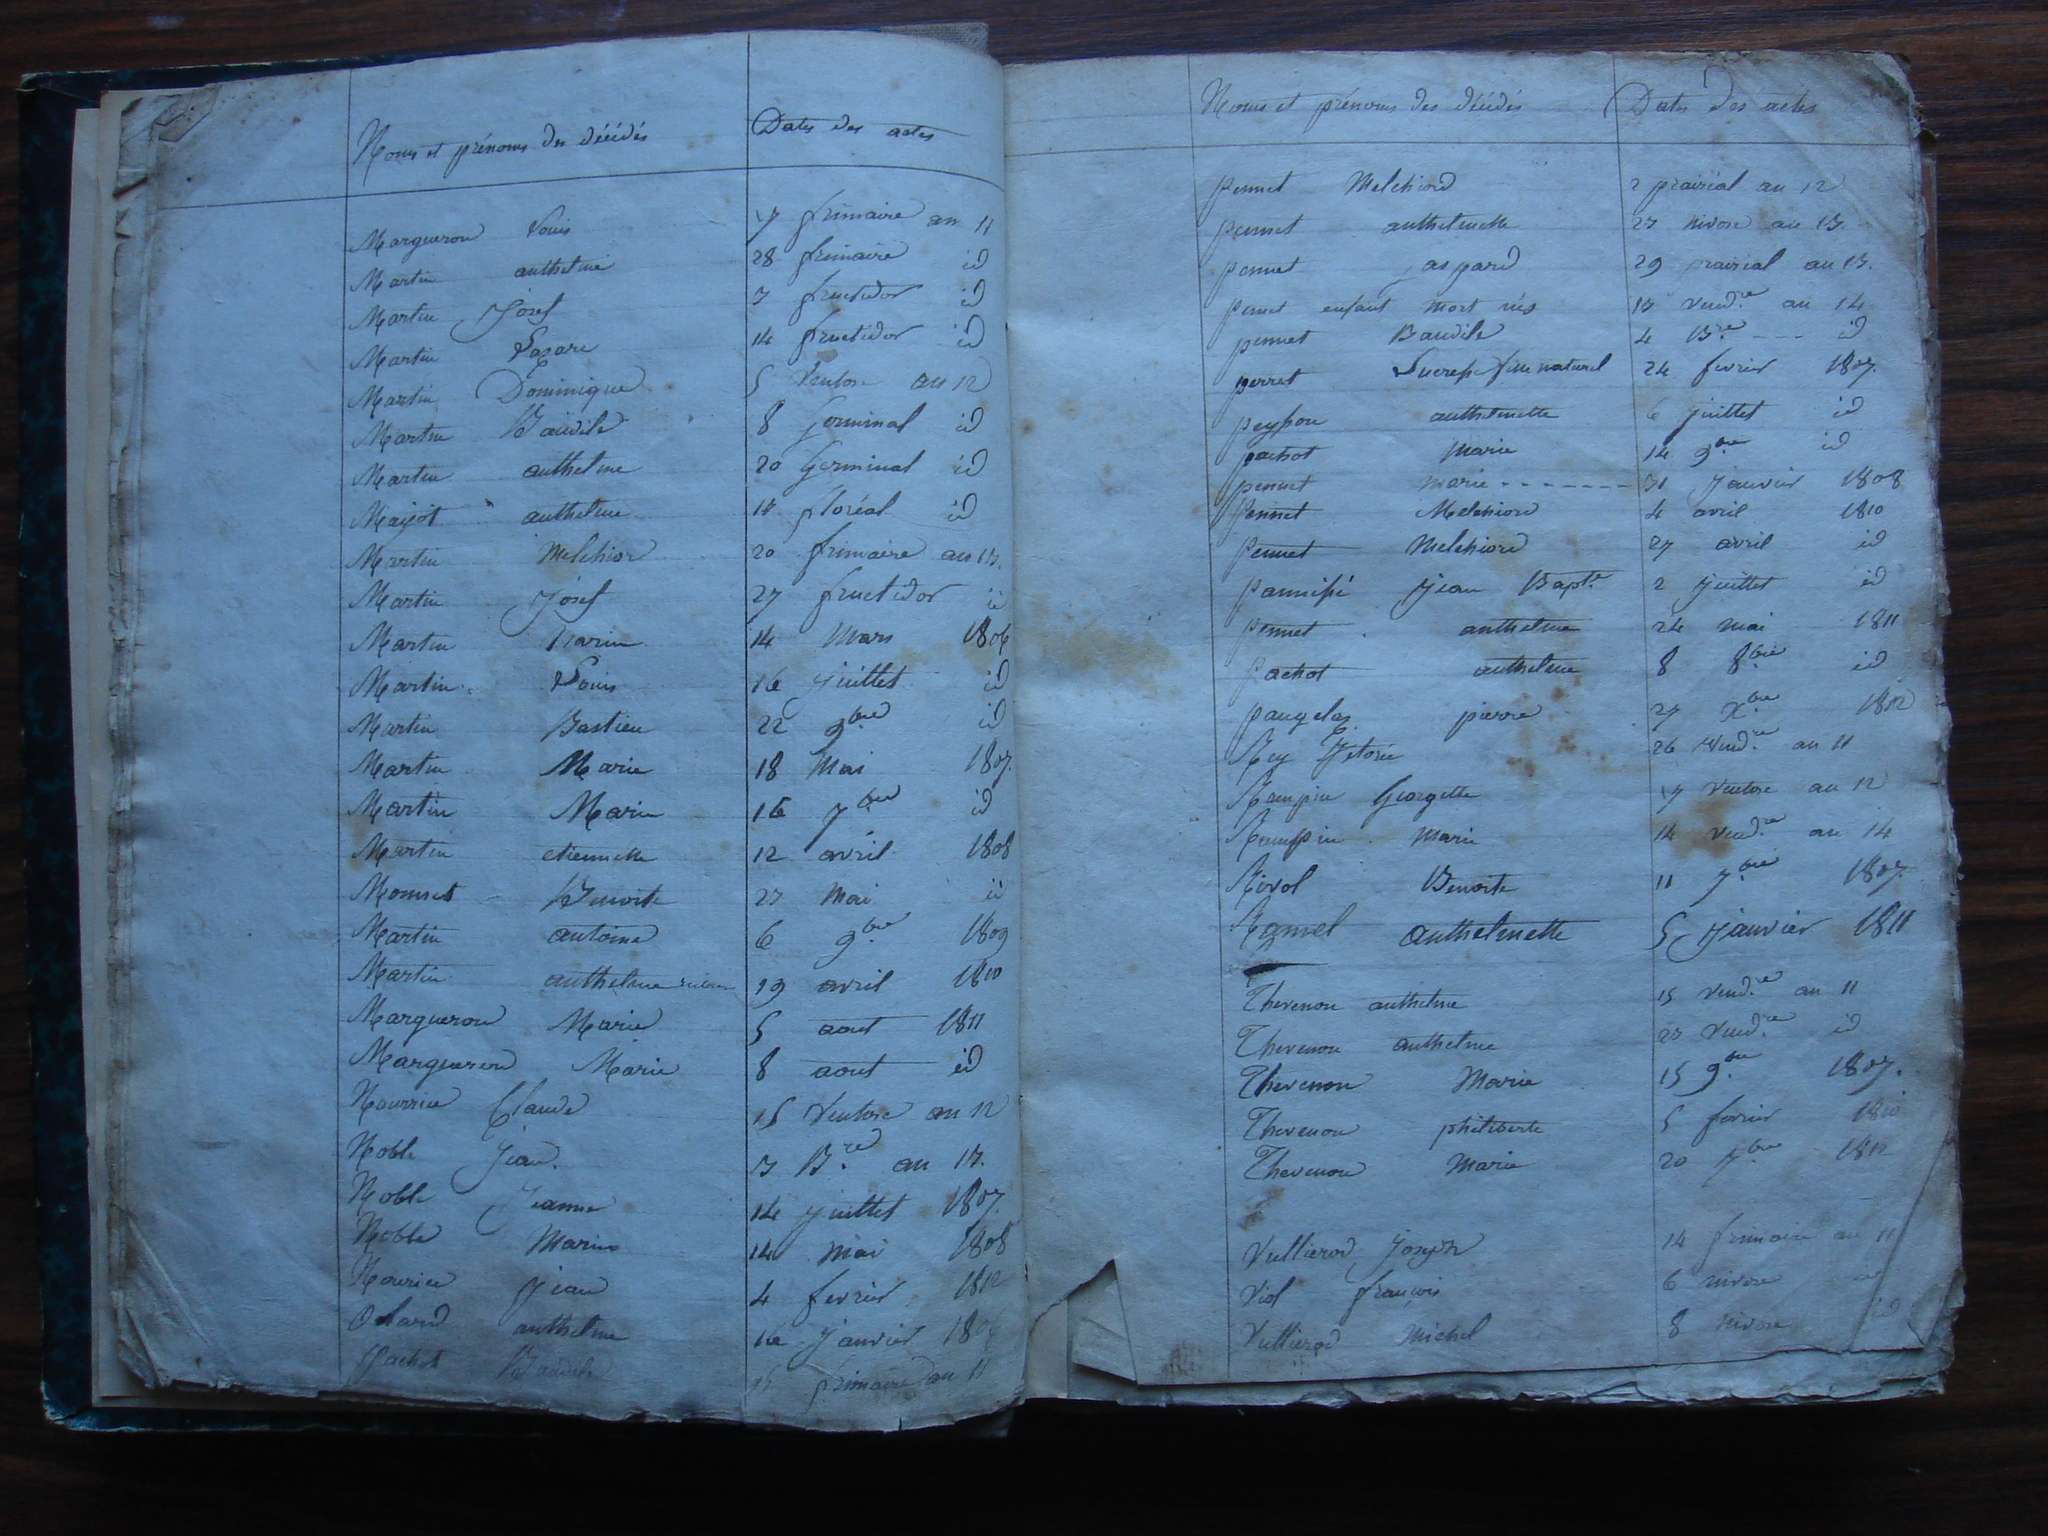 Noms et prénoms des décédés Dates des actes
Margueron Louis 17 frimaire an 11
Martin anthelme 28 frimaire id
Martin Josef 3 fructidor id
Martin Lazare 14 fructidor id
Martin Dominique 5 Ventose an 12
Martin Baudile 8 Germinal id
Martin anthelme 20 Germinal id
anthelme floréal id
Martin Melchior 20 frimaire an 13.
Martin Josef 27 fructidor id
Martin 14 Mars 1806
Martin Louis 16 juillet id
Martin Bastien 22 9bre id
Martin Marie 18 Mai 1807.
Martin Marie 16 7bre id
Martin etiennette 12 avril 1808
Benoite 23 Mai id
Martin antoine 6 9bre 1809
Martin anthelme 19 avril 1810
Margueron Marie 5 aout 1811
Margueron Marie 8 aout id
Nourrice Claude 15 Ventose an 12
Noble Jean. 3 Bre an 13.
Noble Jeanne 14 juillet 1807.
Noble Marie 14 Mai 1808
Nourice Jean 4 fevrier 1812
anthelme 16 janvier
Baudile frimaire an 11
Noms et prénoms des décédés Dates des actes
pennet Melchiord 2 prairial an 12
pennet anthelmette 23 nivose an 13.
pennet gaspard 29 prairial an 13.
pennet enfant mort nés 13 vendre an 14
pennet Baudile 4 Bre --- id
perret naturel 24 fevrier 1807.
anthelmette 6 juillet id
pachot Marie 14 9bre id
pennet marie ------- 31 janvier 1808
Pennet Melchiord 4 avril 1810
Pennet Melchiord 27 avril id
Jean Bapte 2 juillet id
Pennet anthelme 24 mai 1811
Pachot anthelme 8 8bre id
pierre 27 Xbre 1812
Rey 26 Vendre an 11
Georgette 17 Ventose an 12
Marie 14 vendre an 14
Rivol Benoite 11 7bre 1807.
anthelmette 5 janvier 1811
Thevenon anthelme 15 Vendre an 11
Thevenon anthelme 23 Vendre id
Thevenon Marie 15 9bre 1807.
Thevenon philiberte 5 fevrier 1810
Thevenon Marie 20 7bre 1812
Vullierod Joseph 14 frimaire an 11
Viol françois 6 nivose
Vullierod Michel 8 nivose id